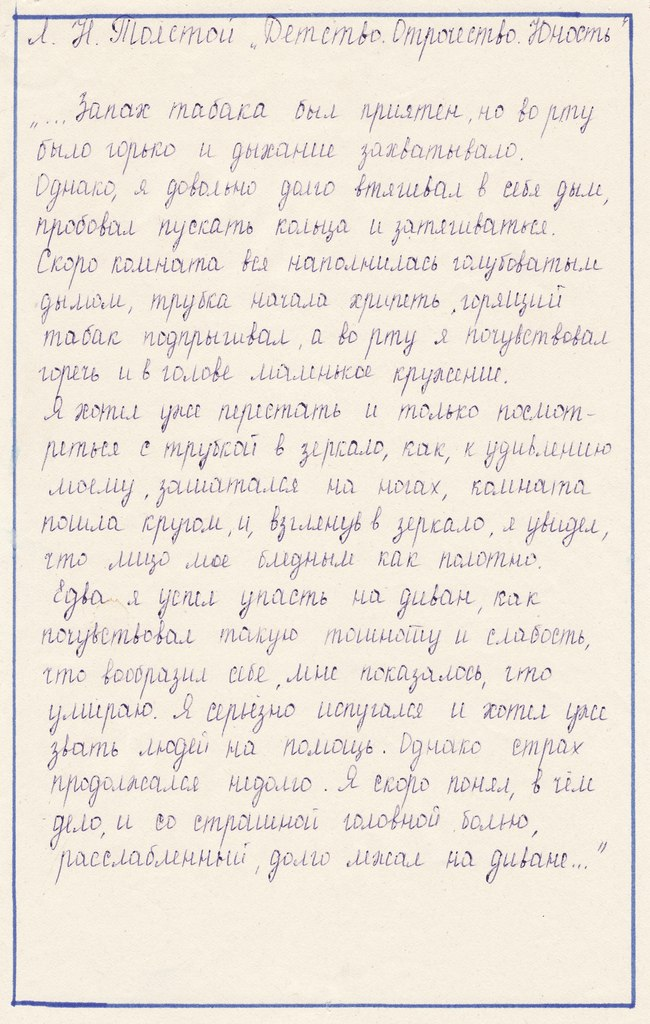 Л. Н. Толстой „Детство. Отрочество. Юность"
„... Запах табака был приятен, но во рту
было горько и дыхание захватывало.
Однако, я довольно долго втягивал в себя дым,
пробовал пускать кольца и затягиваться.
Скоро комната вся наполнилась голубоватым
дымом, трубка начала хрипеть, горящий
табак подпрыгивал, а во рту я почувствовал
горечь и в голове маленькое кружение.
Я хотел уже перестать и только посмот-
реться с трубкой в зеркало, как, к удивлению
моему, зашатался на ногах, комната
пошла кругом, и, взглянув в зеркало, я увидел,
что лицо мое бледным как полотно.
Едва я успел упасть на диван, как
почувствовал такую тошноту и слабость,
что вообразил себе, мне показалось, что
умираю. Я серьёзно испугался и хотел уже
звать людей на помощь. Однако страх
продолжался недолго. Я скоро понял, в чём
дело, и со страшной головной болью,
расслабленный, долго лежал на диване..."